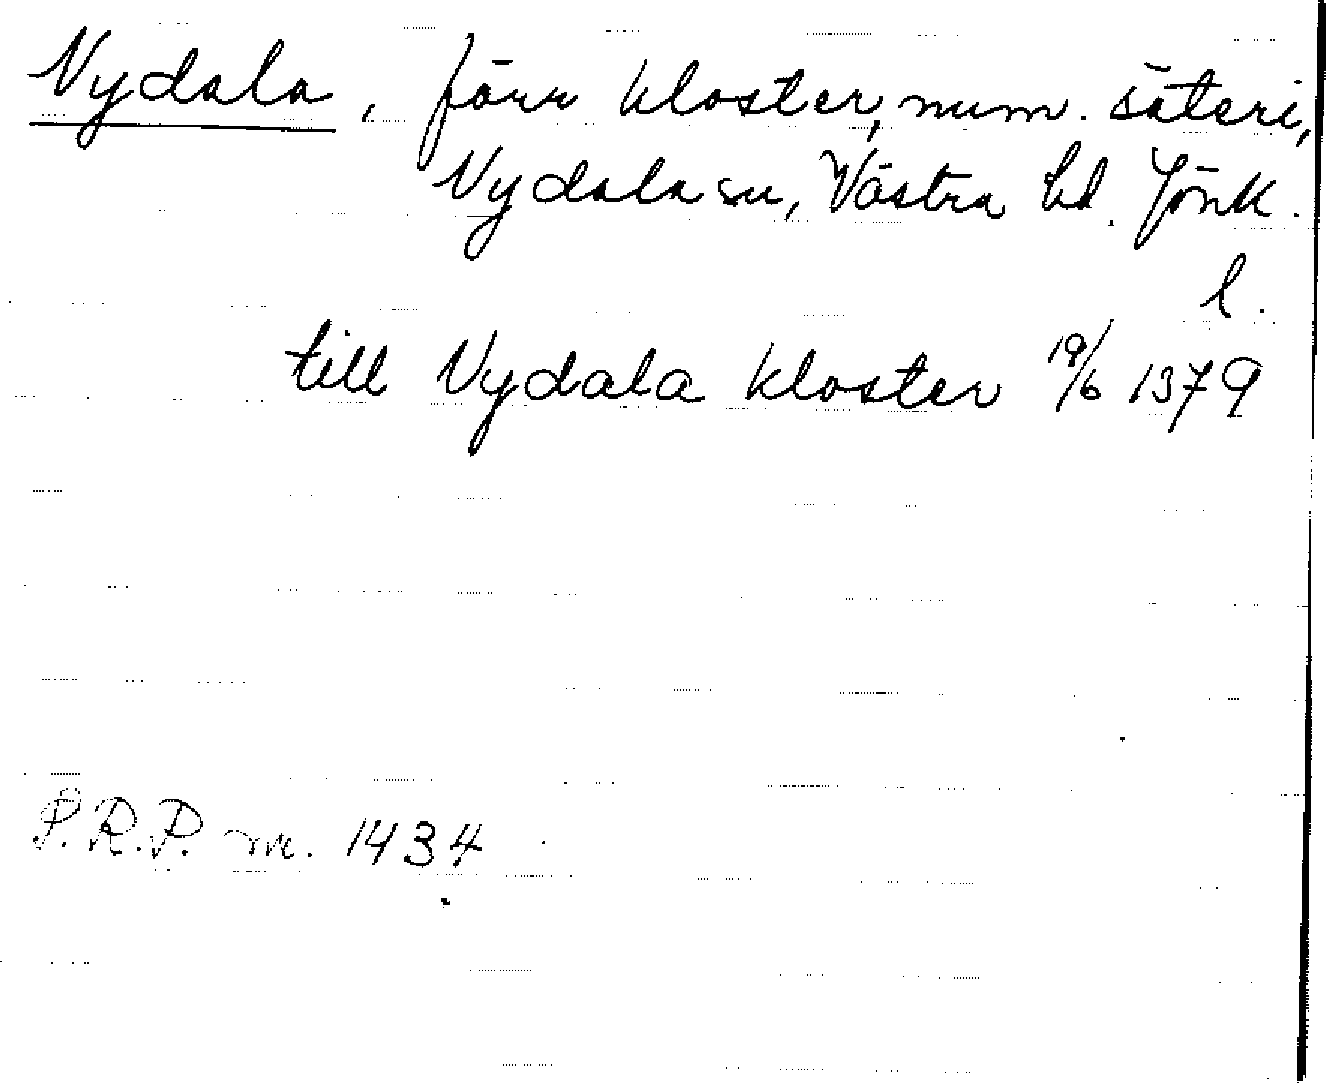 Nydala, förr kloster, num. säteri,
Nydala sn, Västra hd. Jönk.
l.
till Nydala kloster 19/6 1379
P.R.P. nr. 1434